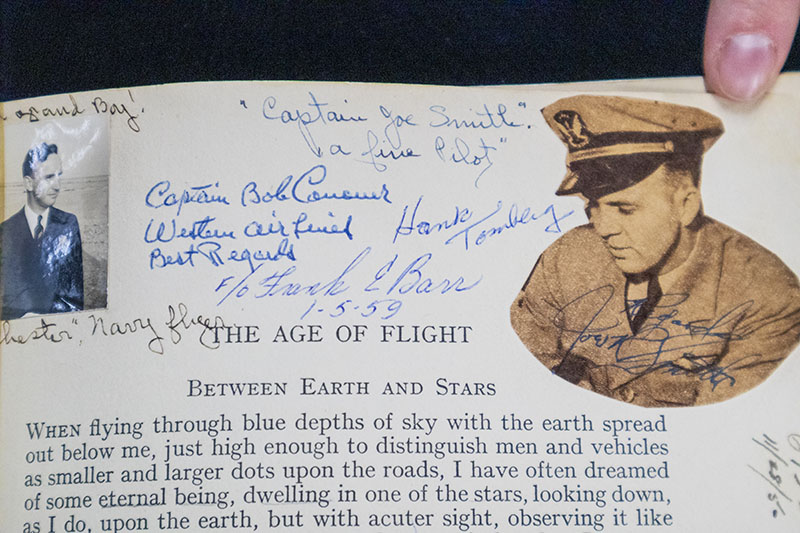 and Boy!
"Captain Joe Smith".
"a fine Pilot"
Captain Bob Conover
Western Air Lines
Best Regards
Hank Tomberg
F/O Frank E Barr
1-5-59
Navy flyer
THE AGE OF FLIGHT
BETWEEN EARTH AND STARS
WHEN flying through blue depths of sky with the earth spread
out below me, just high enough to distinguish men and vehicles
as smaller and larger dots upon the roads, I have often dreamed
of some eternal being, dwelling in one of the stars, looking down,
as I do, upon the earth, but with acuter sight, observing it like